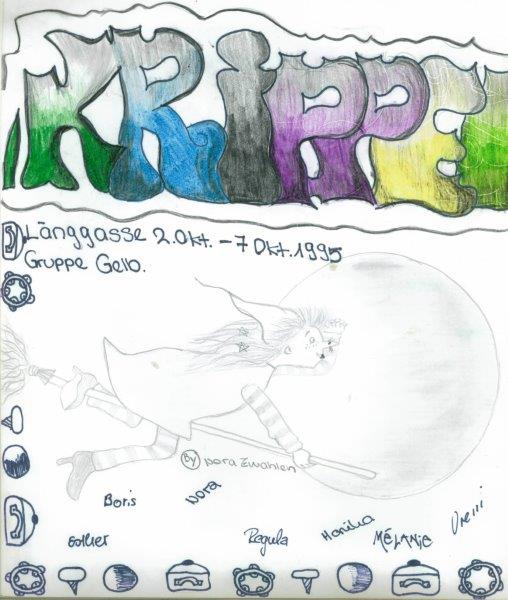 KRIPPE
Länggasse 2.Okt. - 7 Okt. 1995
Gruppe Gelb.
By Nora Zwahlen
Boris
Nora
Esther
Regula
Monika
MÉLANIE
Vreni